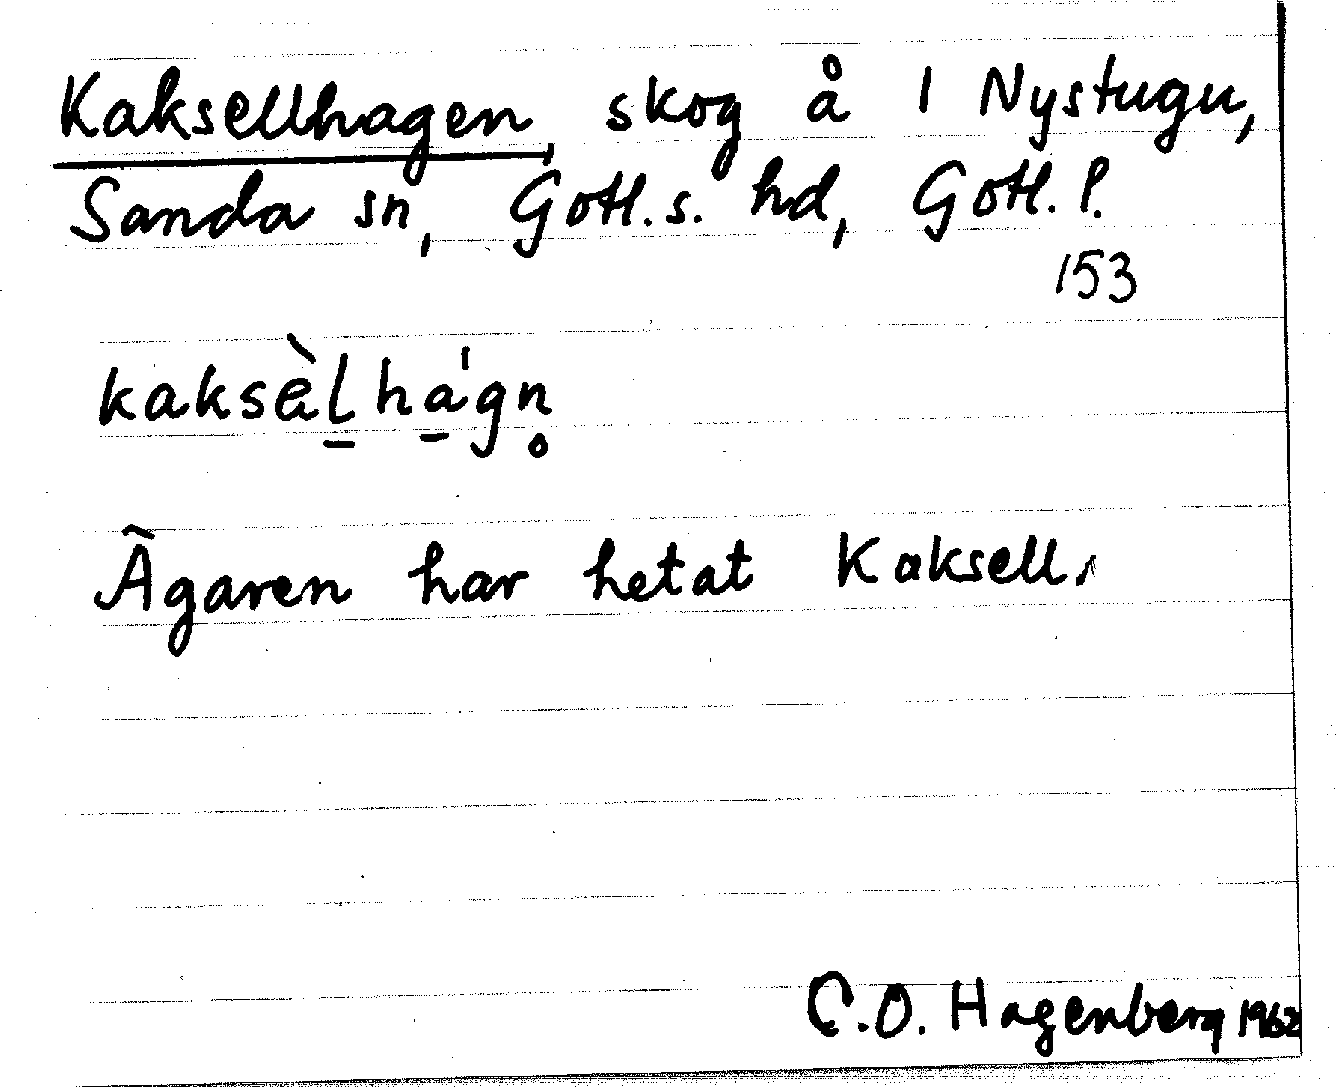 Kaksellhagen, skog å 1 Nystugu,
Sanda sn, Gotl. s. hd, Gotl. l.
153
kaksæ̀l̠ha̠´gn̥
Ägaren har hetat Kaksell.
C.O. Hagenberg 1962